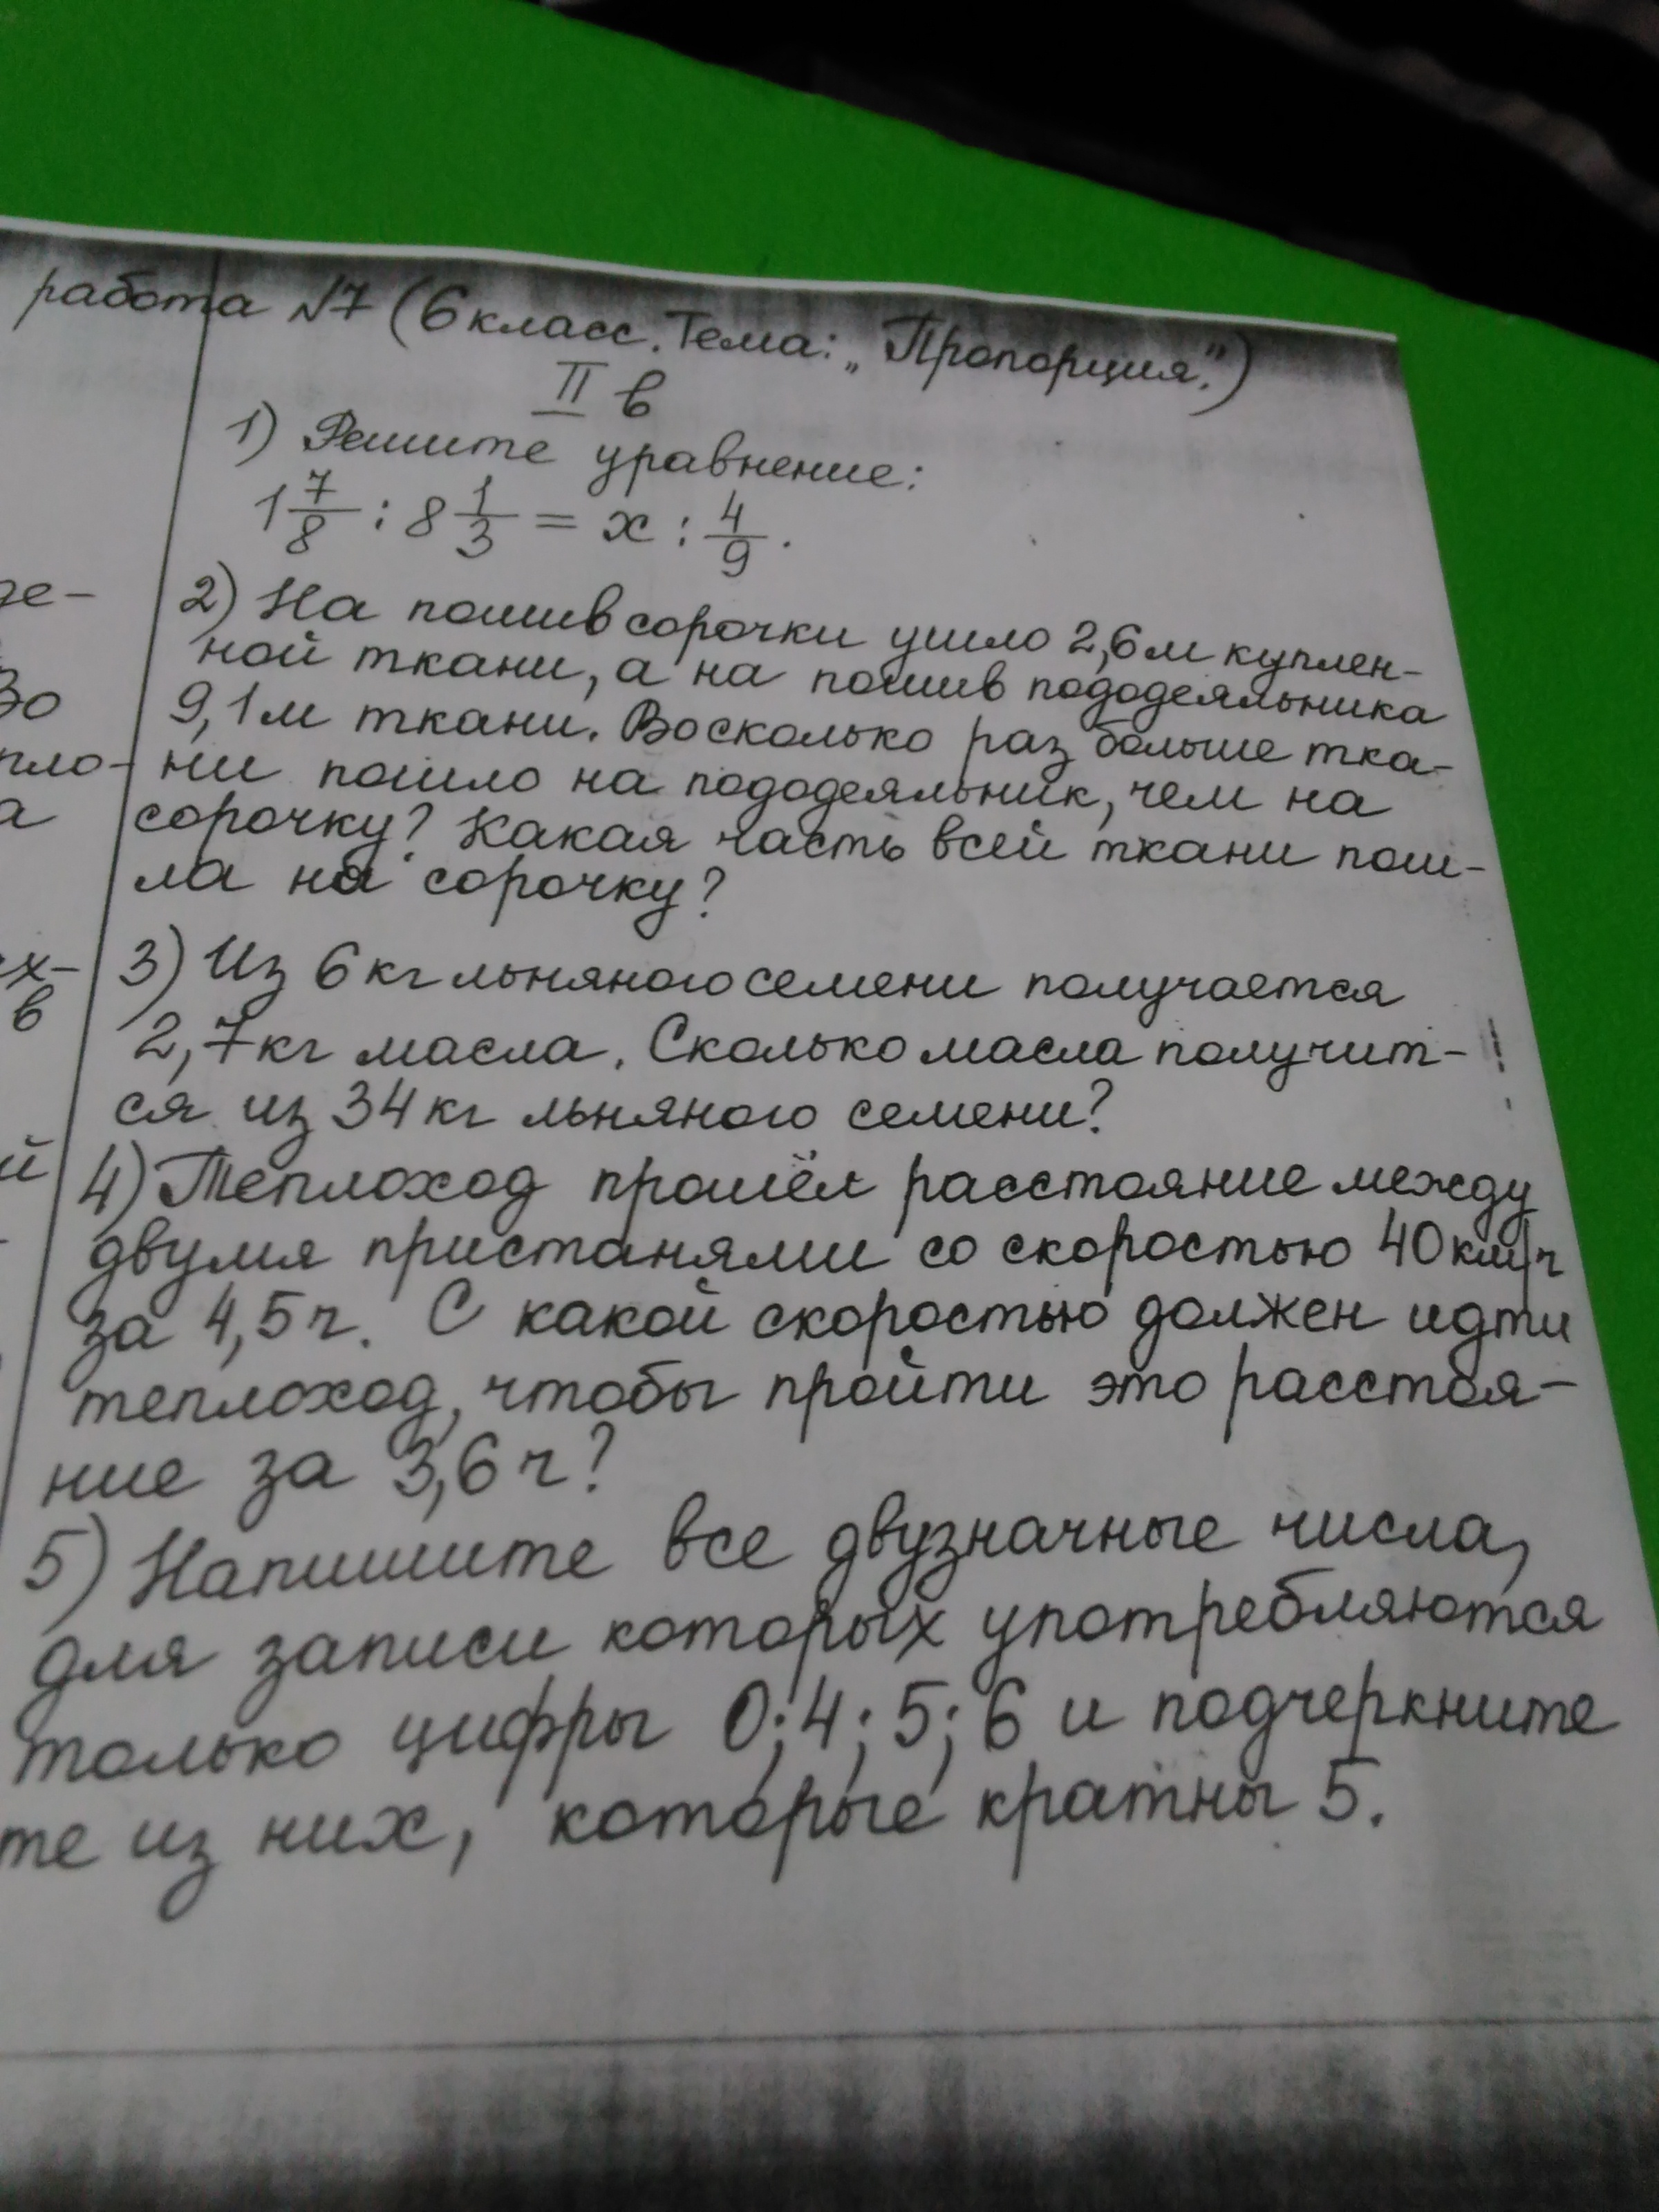 работа №7 (6 класс. Тема: „Пропорция.")
II в
1) Решите уравнение:
1 7/8 : 8 1/3 = x : 4/9.
2) На пошив сорочки ушло 2,6 м куплен-
ной ткани, а на пошив пододеяльника
9,1 м ткани. Во сколько раз больше тка-
ни пошло на пододеяльник, чем на
сорочку? Какая часть всей ткани пош-
ла на сорочку?
3) Из 6 кг льняного семени получается
2,7 кг масла. Сколько масла получит-
ся из 34 кг льняного семени?
4) Теплоход прошёл расстояние между
двумя пристанями со скоростью 40 км/ч
за 4,5 ч. С какой скоростью должен идти
теплоход, чтобы пройти это расстоя-
ние за 3,6 ч?
5) Напишите все двузначные числа,
для записи которых употребляются
только цифры 0; 4; 5; 6 и подчеркните
те из них, которые кратны 5.